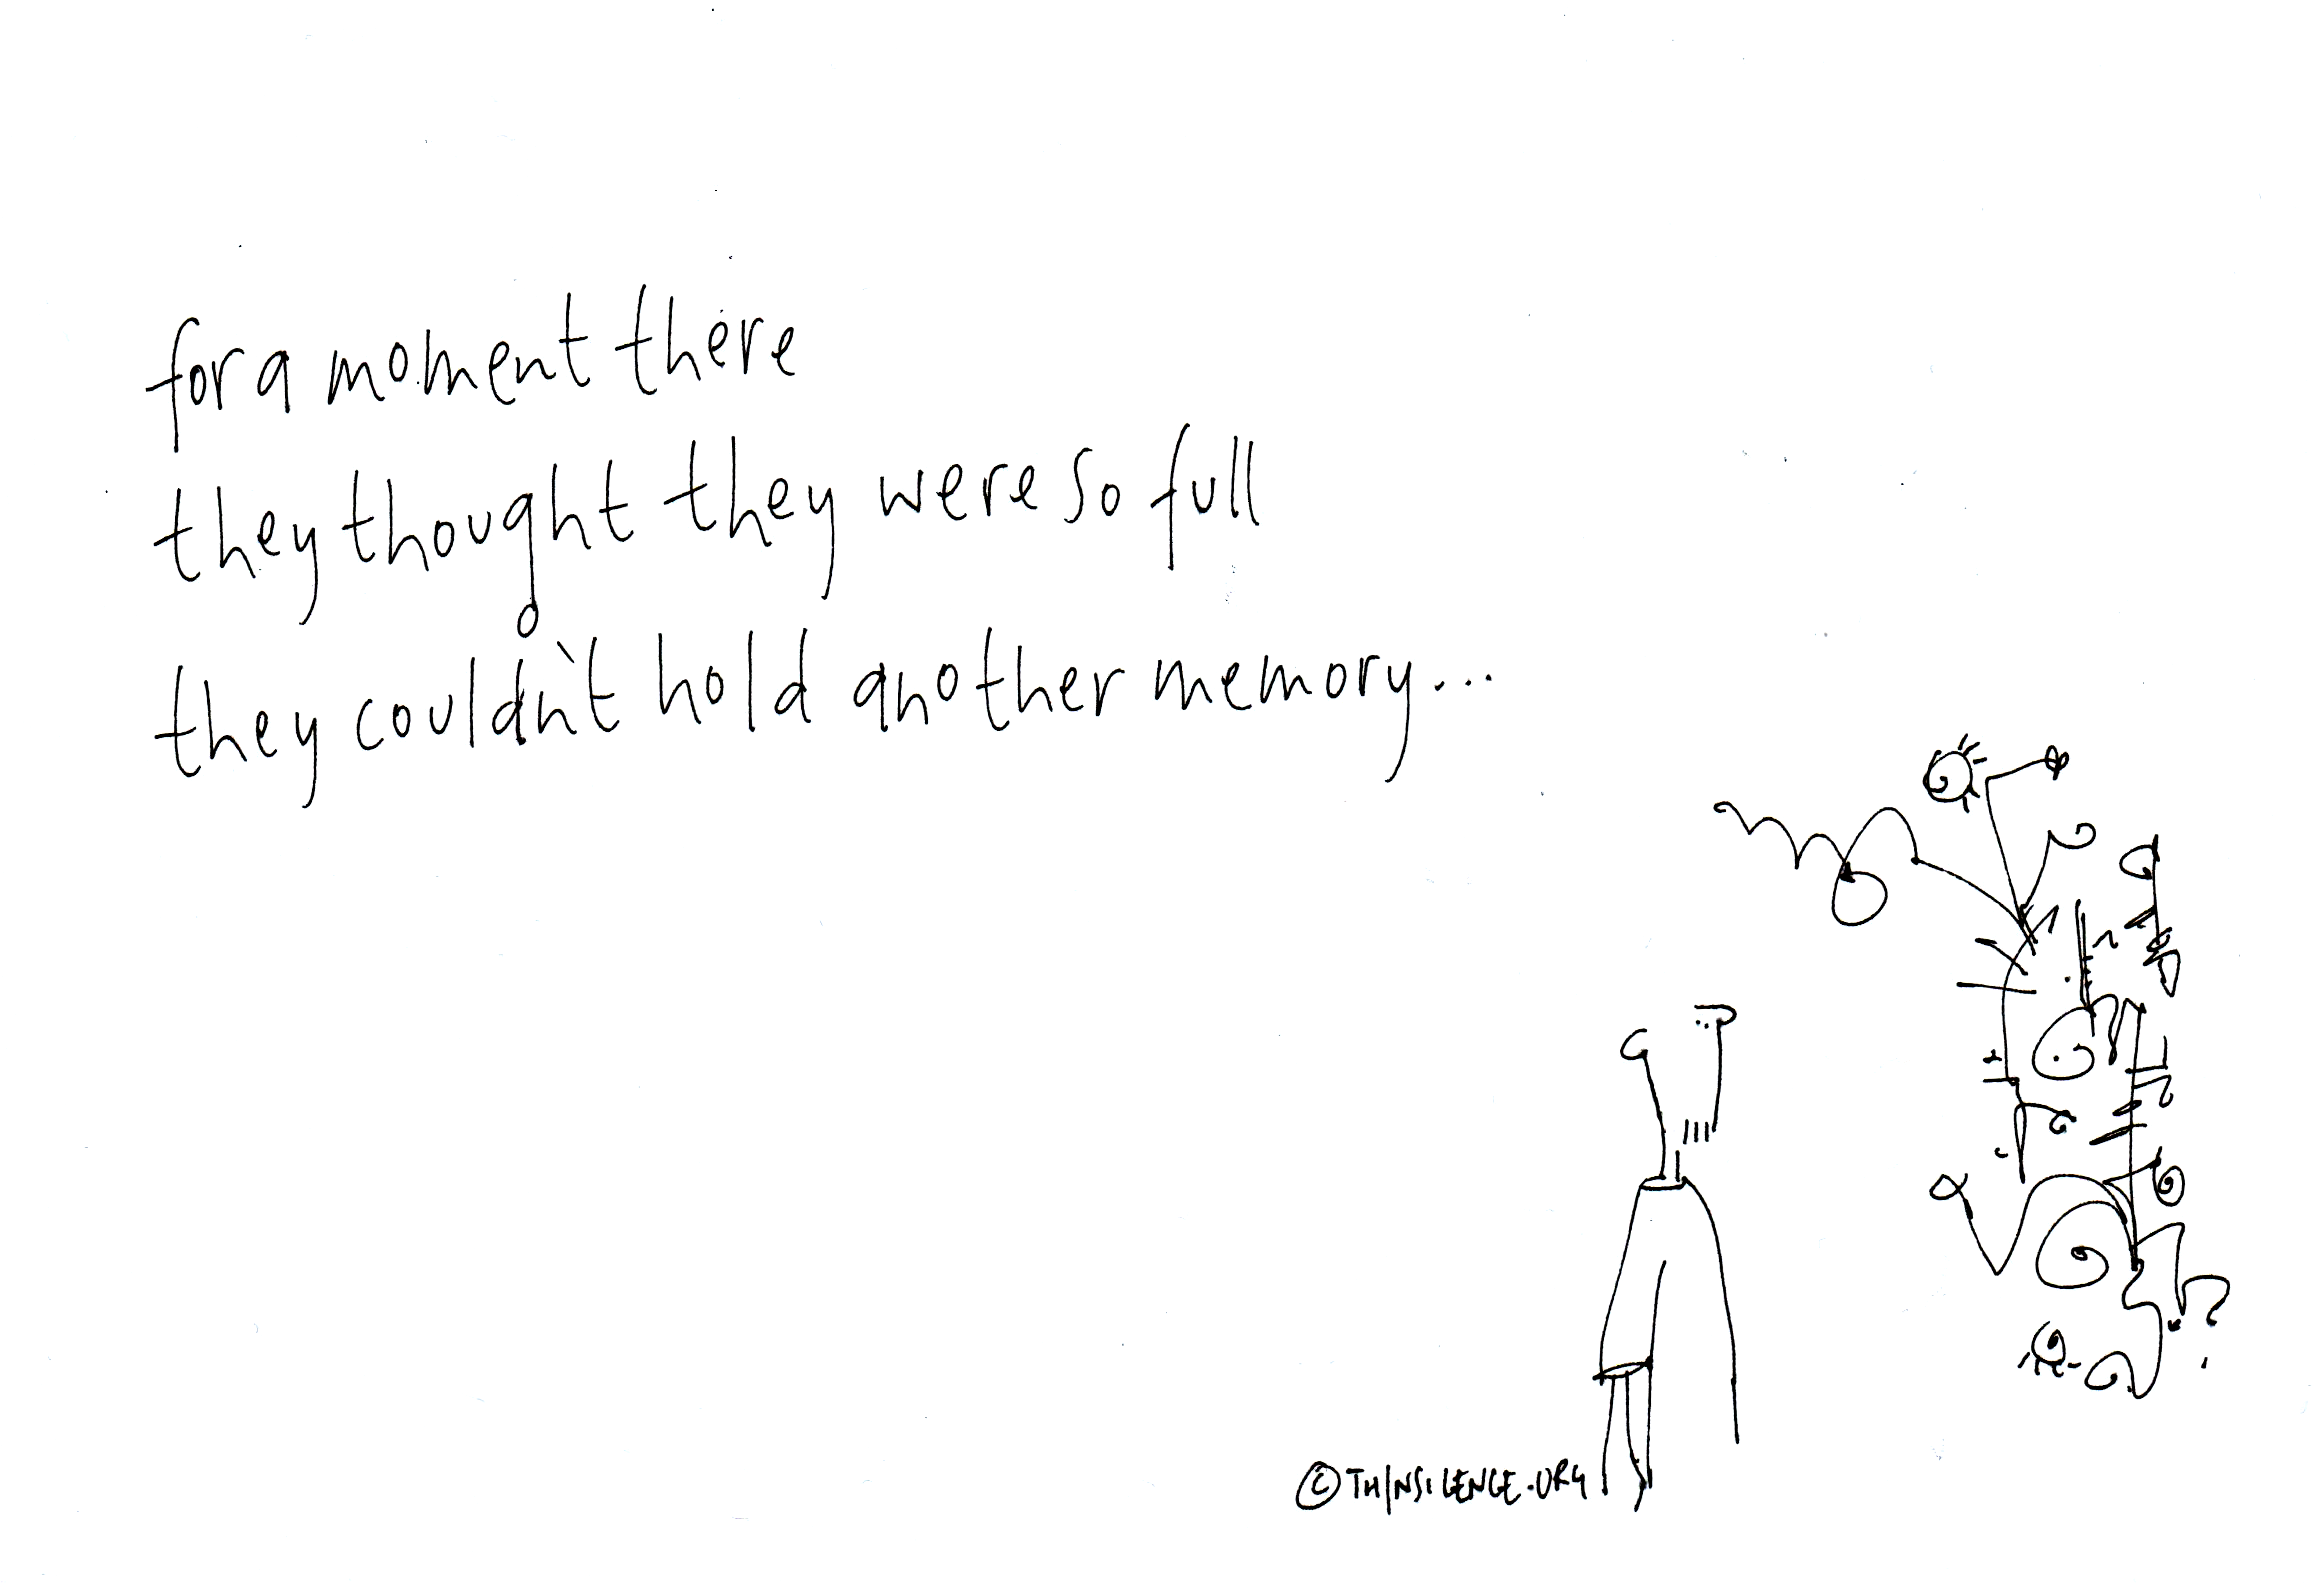 for a moment there
they thought they were so full
they couldn't hold another memory...
© THINSILENCE.ORG